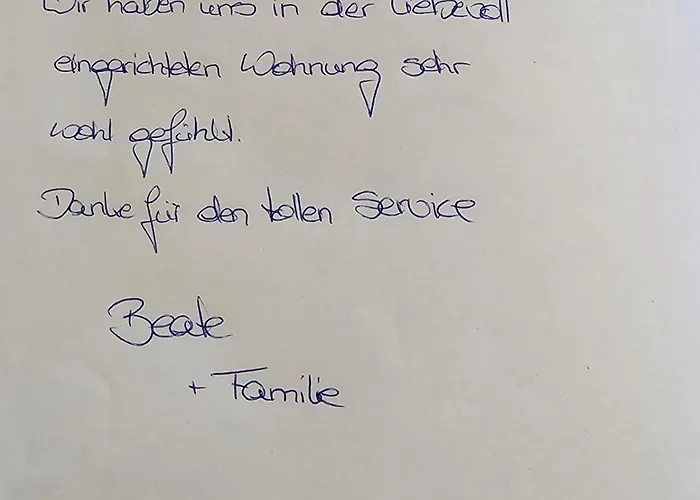 Wir haben uns in der liebevoll
eingerichteten Wohnung sehr
wohl gefühlt.
Danke für den tollen Service
Beate
+ Familie